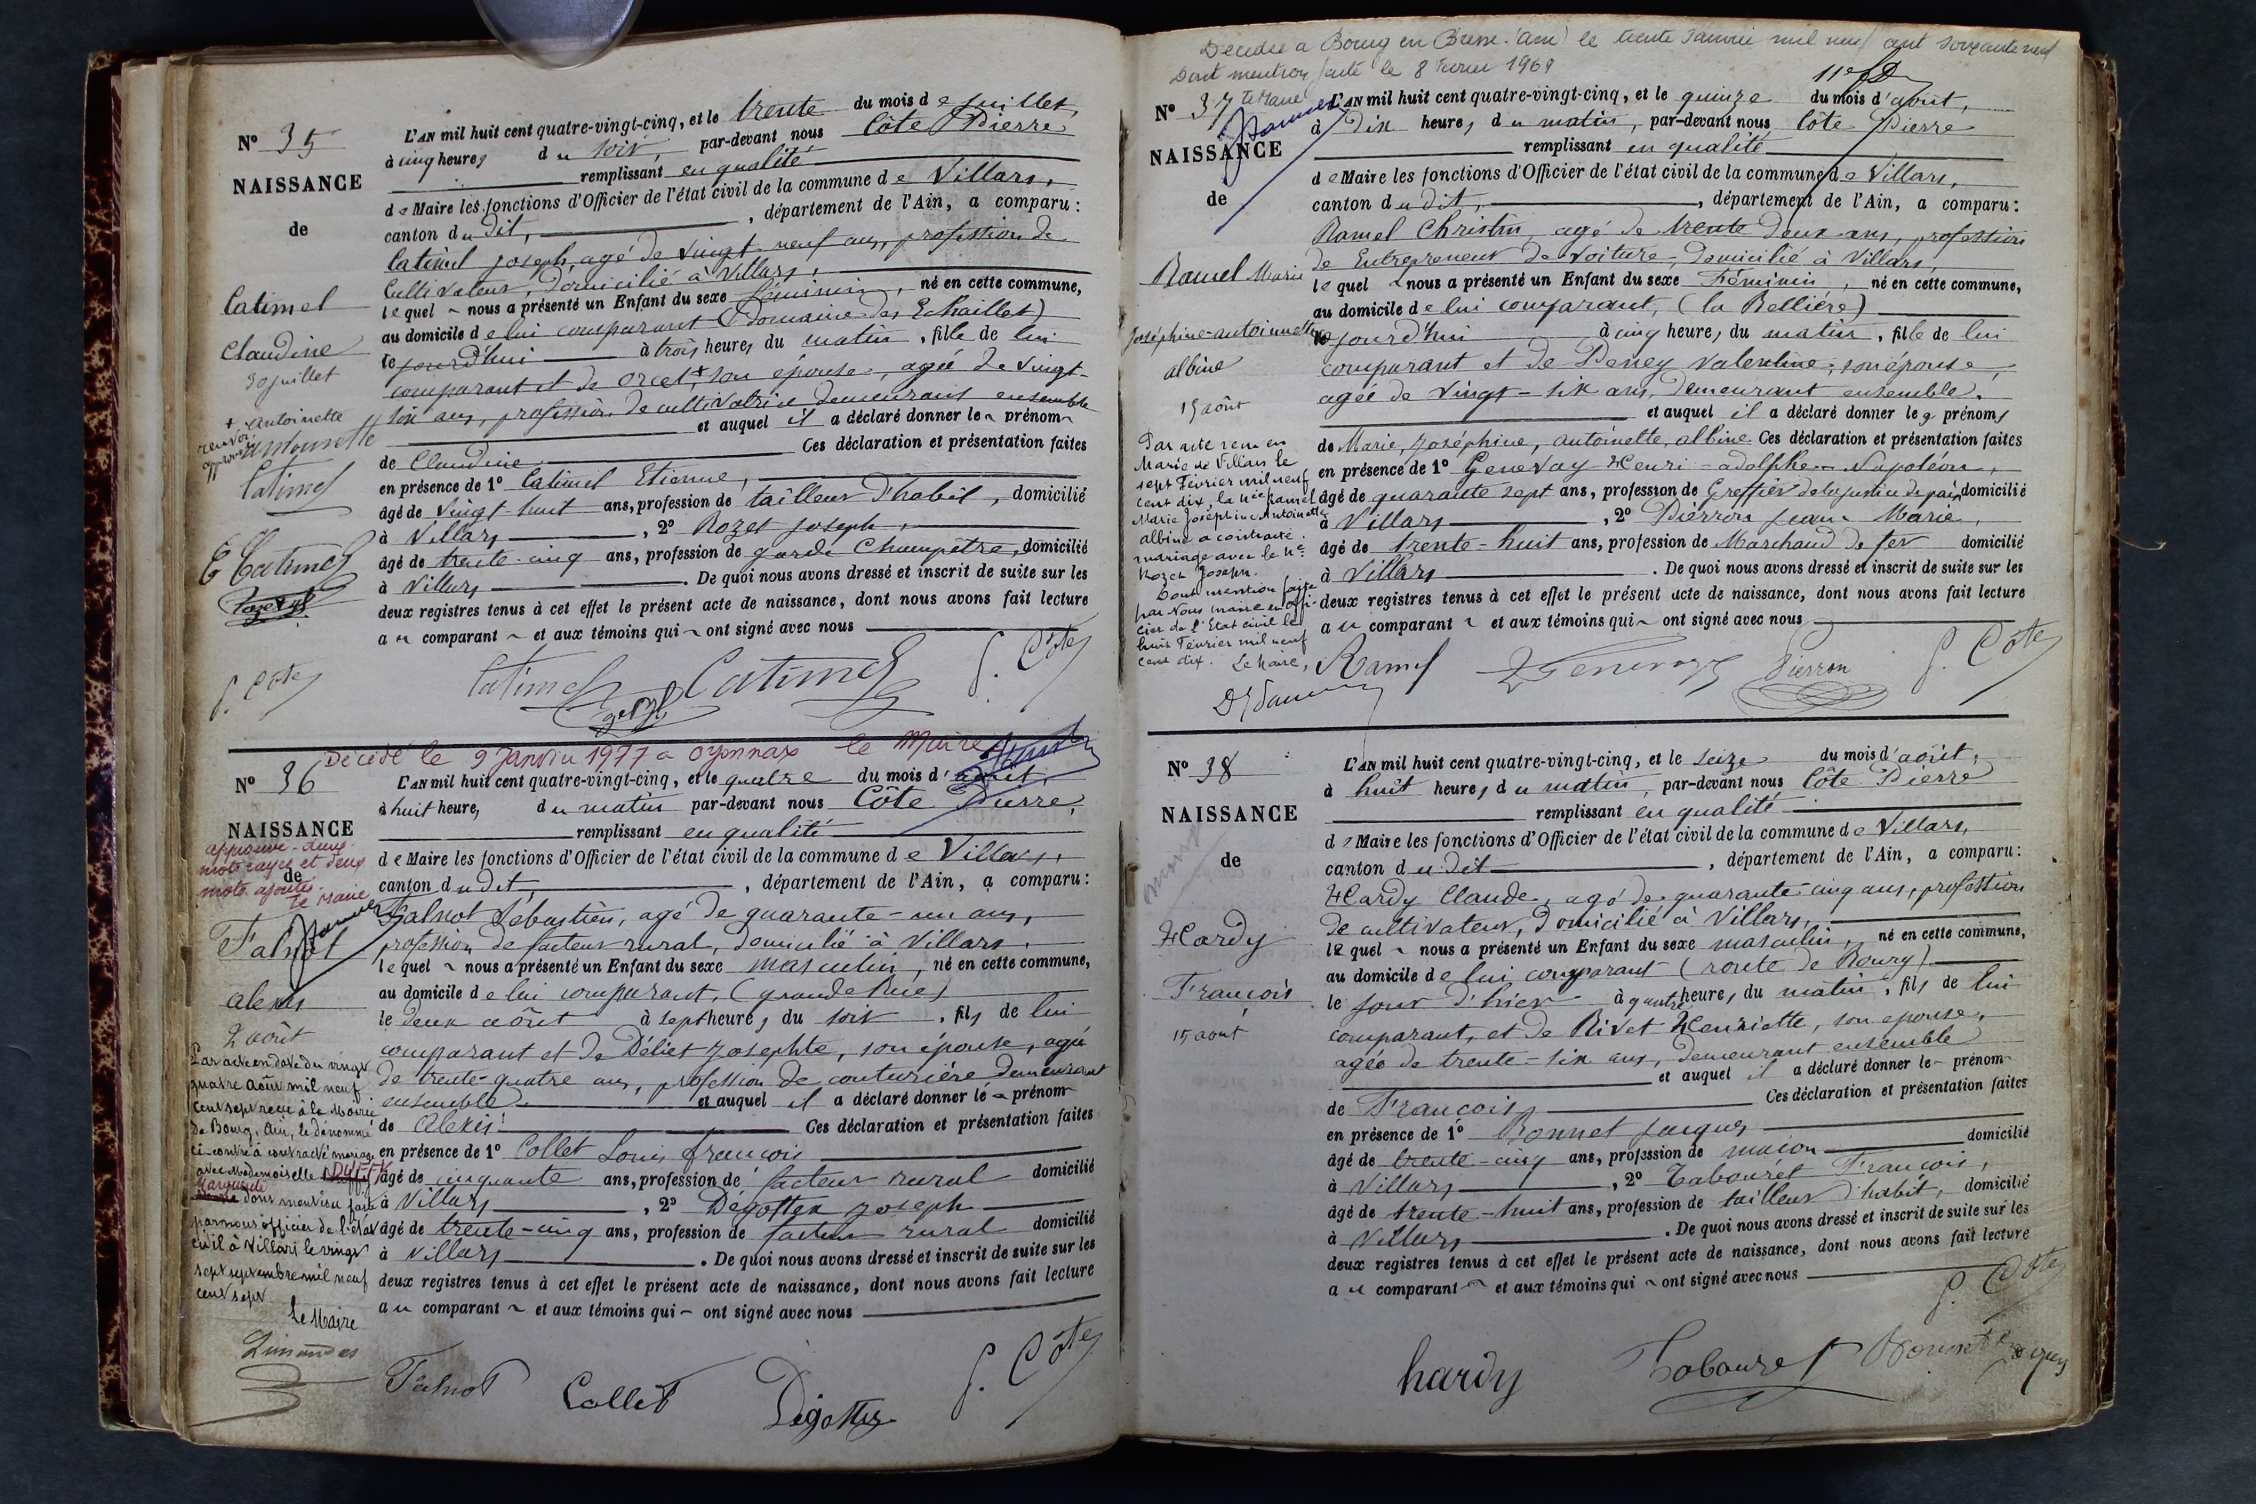 Nº 35
NAISSANCE
de
Catimel
Claudine
30 juillet
+ Antoinette
renvoi
approuvé
Catimel
E Catimel
P. Côte
L'AN mil huit cent quatre-vingt-cinq, et le trente du mois de juillet,
à cinq heures du soir, par-devant nous Côte Pierre
remplissant en qualité
de Maire les fonctions d'Officier de l'état civil de la commune de Villars,
canton dudit, département de l'Ain, a comparu:
Catimel Joseph, agé de vingt neuf ans, profession de
Cultivateur, domicilié à Villars,
lequel nous a présenté un Enfant du sexe féminin, né en cette commune,
au domicile de lui comparant (Domaine des Echaillet)
ce jourd'hui à trois heures du matin, fille de lui
comparant et de Orcet +, son épouse, agée de vingt-
six ans, profession de cultivatrice demeurant ensemble
et auquel il a déclaré donner le prénom
de Claudine Ces déclaration et présentation faites
en présence de 1º Catimel Etienne,
âgé de vingt-huit ans, profession de tailleur d'habit, domicilié
à Villars, 2º Rozet Joseph,
âgé de trente-cinq ans, profession de garde Champêtre, domicilié
à Villars. De quoi nous avons dressé et inscrit de suite sur les
deux registres tenus à cet effet le présent acte de naissance, dont nous avons fait lecture
au comparant et aux témoins qui ont signé avec nous
Catimel Catimel P. Côte
Décédé le 9 Janvier 1977 a Oyonnax le Maire
Nº 36
NAISSANCE
de
approuvé deux
mots rayés et deux
mots ajoutés.
Le Maire
Falnot
Alexis
2 août
Par acte en date du vingt
quatre Août mil neuf
cent sept reçu à la Mairie
de Bourg, Ain, le dénommé
ci-contre a contracté mariage
avec Mademoiselle DUFFY
Marguerite
dont mention faite
par nous officier de l'état
civil à Villars le vingt
sept septembre mil neuf
cent sept
Le Maire
L'AN mil huit cent quatre-vingt-cinq, et le quatre du mois d'août,
à huit heures du matin par-devant nous Côte Pierre,
remplissant en qualité
de Maire les fonctions d'Officier de l'état civil de la commune de Villars,
canton dudit, département de l'Ain, a comparu:
Falnot Sébastien, agé de quarante-un ans,
profession de facteur rural, domicilié à Villars,
lequel nous a présenté un Enfant du sexe masculin, né en cette commune,
au domicile de lui comparant, (grande Rue)
le deux août à sept heures du soir, fils de lui
comparant et de Déliet Josephte, son épouse, agée
de trente-quatre ans, profession de couturière demeurant
ensemble et auquel il a déclaré donner le prénom
de Alexis Ces déclaration et présentation faites
en présence de 1º Collet Louis françois
âgé de cinquante ans, profession de facteur rural domicilié
à Villars, 2º Dégottex Joseph
âgé de trente-cinq ans, profession de facteur rural domicilié
à Villars. De quoi nous avons dressé et inscrit de suite sur les
deux registres tenus à cet effet le présent acte de naissance, dont nous avons fait lecture
au comparant et aux témoins qui ont signé avec nous
Falnot Collet Dégottex P. Côte
Décédée a Bourg en Bresse (Ain) le trente Janvier mil neuf cent soixante neuf
Dont mention faite le 8 Février 1969
Nº 37 Le Maire
NAISSANCE
de
Ramel Marie
Joséphine-antoinette
albine
15 août
Par acte reçu en
Mairie de Villars le
sept Février mil neuf
cent dix, la née Ramel
Marie Joséphine Antoinette
albine a contracté
mariage avec le né
Rozet Joseph.
Dont mention faite
par Nous maire en offi-
cier de l'Etat civil le
huit Février mil neuf
cent dix. Le Maire,
L'AN mil huit cent quatre-vingt-cinq, et le quinze du mois d'août,
à Dix heures du matin, par-devant nous Côte Pierre
remplissant en qualité
de Maire les fonctions d'Officier de l'état civil de la commune de Villars,
canton dudit, département de l'Ain, a comparu:
Ramel Christin, agé de trente deux ans, profession
de Entrepreneur de Voiture, domicilié à Villars,
lequel nous a présenté un Enfant du sexe Féminin, né en cette commune,
au domicile de lui comparant, (la Bellière)
ce jourd'hui à cinq heures du matin, fille de lui
comparant et de Peney Valentine, son épouse,
agée de vingt-six ans, demeurant ensemble.
et auquel il a déclaré donner les prénoms
de Marie, Joséphine, antoinette, albine. Ces déclaration et présentation faites
en présence de 1º Genevay Henri-adolphe-Napoléon,
âgé de quarante sept ans, profession de Greffier de la justice de paix, domicilié
à Villars, 2º Pierron Jean Marie,
âgé de trente-huit ans, profession de Marchand de fer domicilié
à Villars. De quoi nous avons dressé et inscrit de suite sur les
deux registres tenus à cet effet le présent acte de naissance, dont nous avons fait lecture
au comparant et aux témoins qui ont signé avec nous
Ramel Genevay Pierron P. Côte
Nº 38
NAISSANCE
de
Hardy
François
15 août
L'AN mil huit cent quatre-vingt-cinq, et le seize du mois d'août,
à huit heures du matin, par-devant nous Côte Pierre
remplissant en qualité
de Maire les fonctions d'Officier de l'état civil de la commune de Villars,
canton dudit, département de l'Ain, a comparu:
Hardy Claude, agé de quarante-cinq ans, profession
de cultivateur, domicilié à Villars,
lequel nous a présenté un Enfant du sexe masculin, né en cette commune,
au domicile de lui comparant (route de Bourg)
le jour d'hier à quatre heures du matin, fils de lui
comparant, et de Rivet Henriette, son epouse,
agée de trente-six ans, demeurant ensemble
et auquel il a déclaré donner le prénom
de François Ces déclaration et présentation faites
en présence de 1º Bonnet Jacques
âgé de trente-cinq ans, profession de maçon domicilié
à Villars, 2º Tabouret François,
âgé de trente-huit ans, profession de tailleur d'habit, domicilié
à Villars. De quoi nous avons dressé et inscrit de suite sur les
deux registres tenus à cet effet le présent acte de naissance, dont nous avons fait lecture
au comparant et aux témoins qui ont signé avec nous
P. Côte
hardy Tabouret Bonnet